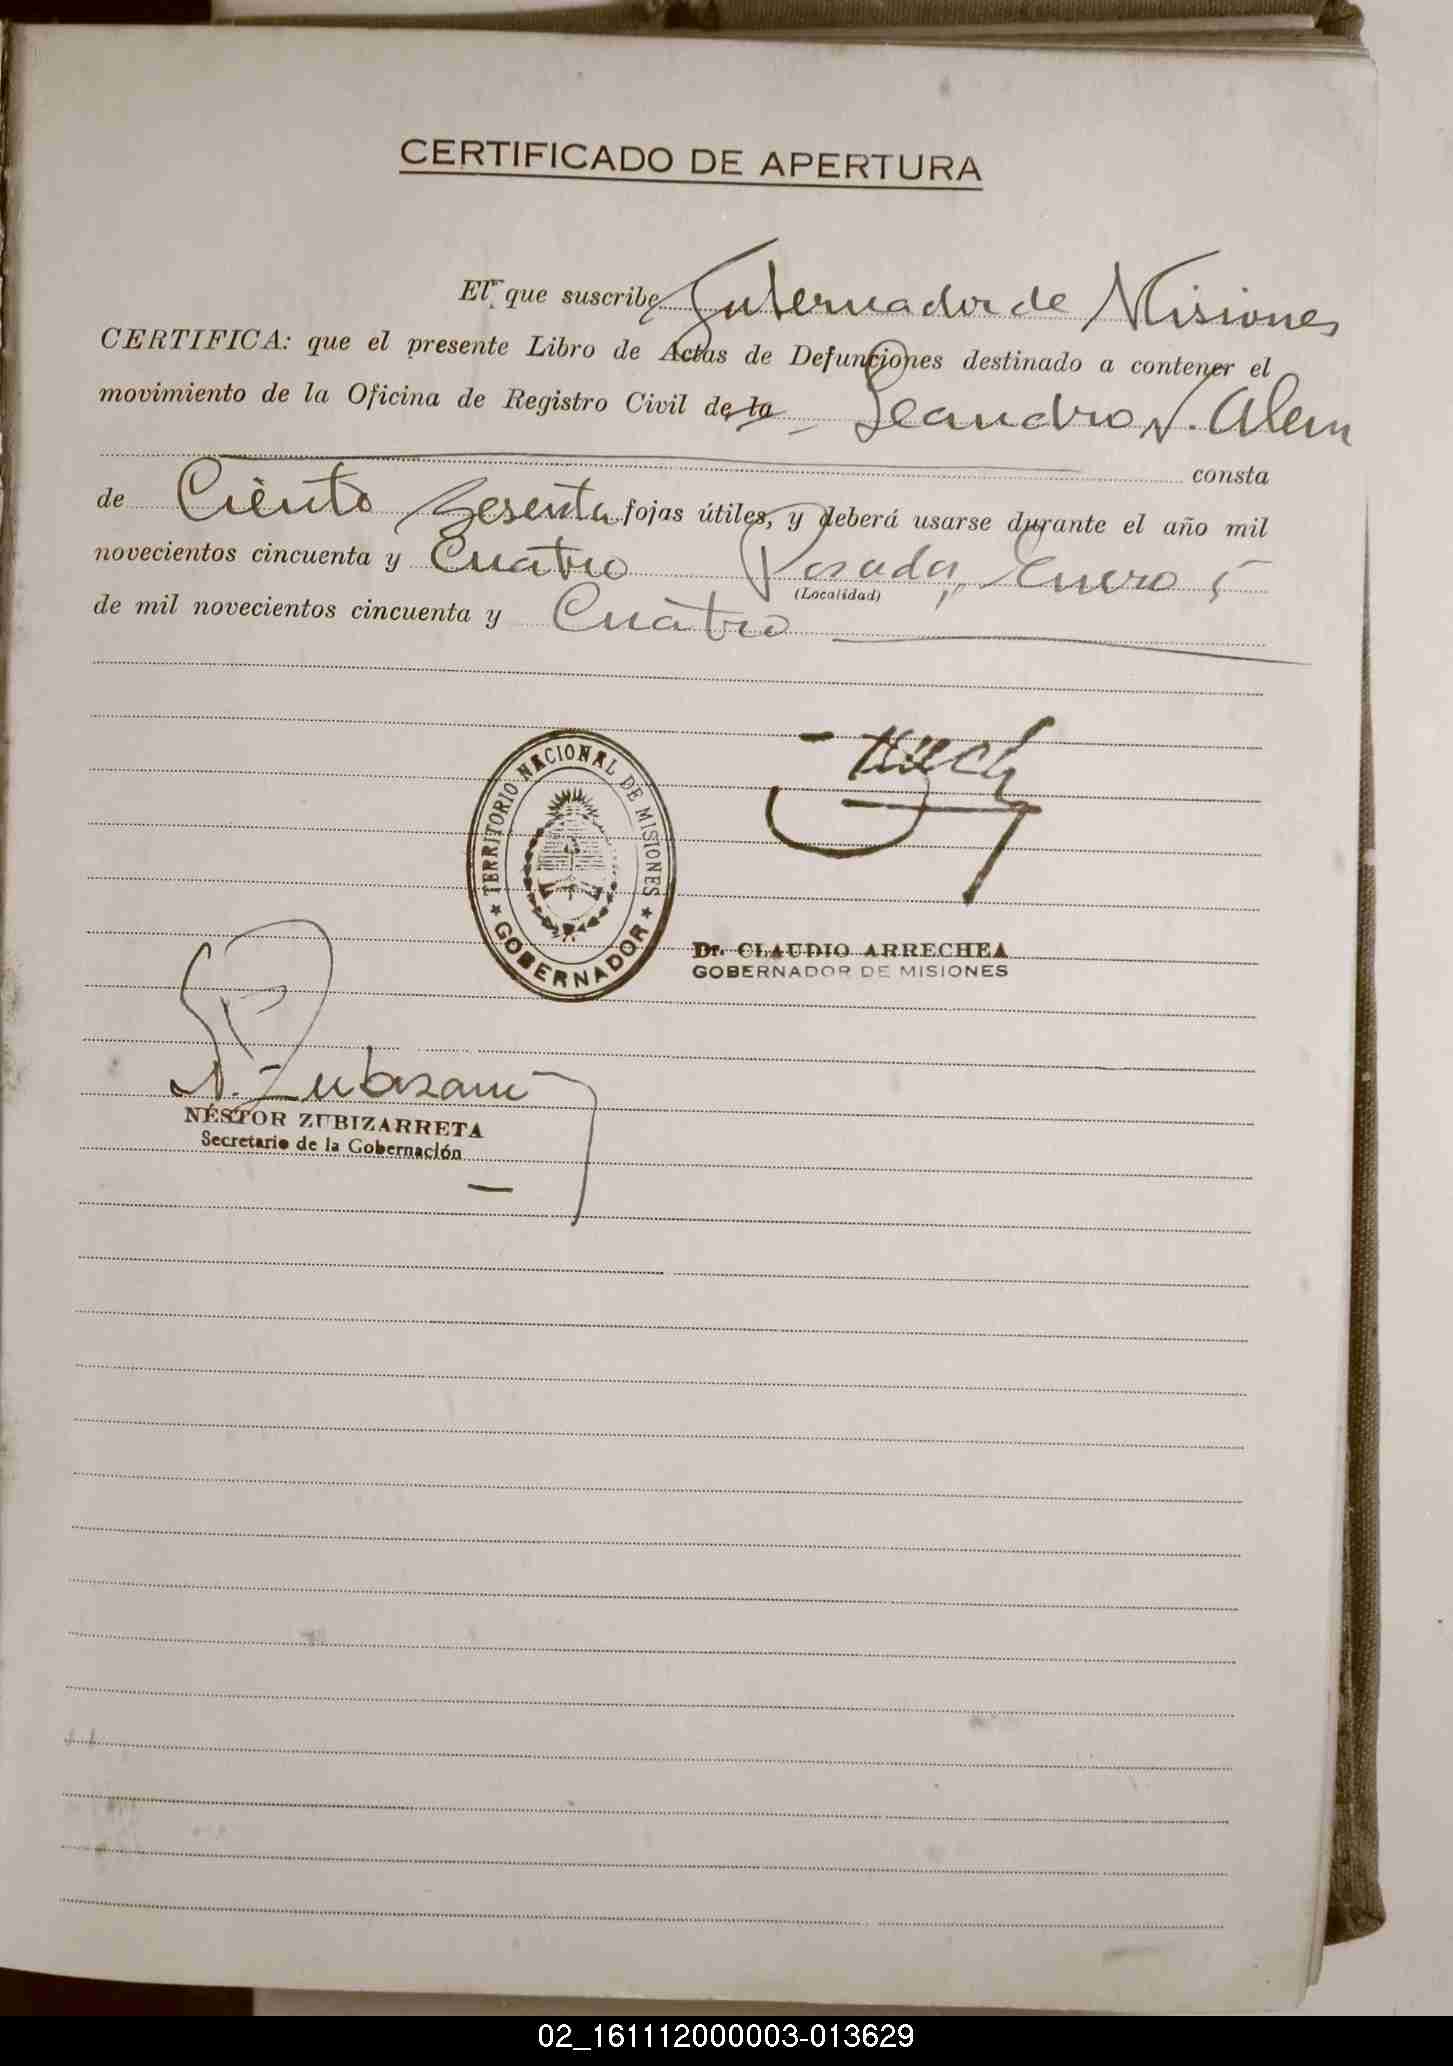 CERTIFICADO DE APERTURA
El que suscribe Gobernador de Misiones
CERTIFICA: que el presente Libro de Actas de Defunciones destinado a contener el
movimiento de la Oficina de Registro Civil de la Leandro N. Alem
consta
de Ciento Sesenta fojas útiles, y deberá usarse durante el año mil
novecientos cincuenta y Cuatro Posadas, Enero 5
(Localidad)
de mil novecientos cincuenta y Cuatro
TERRITORIO NACIONAL DE MISIONES
★ GOBERNADOR ★
Dr. CLAUDIO ARRECHEA
GOBERNADOR DE MISIONES
NÉSTOR ZUBIZARRETA
Secretario de la Gobernación
02_161112000003-013629